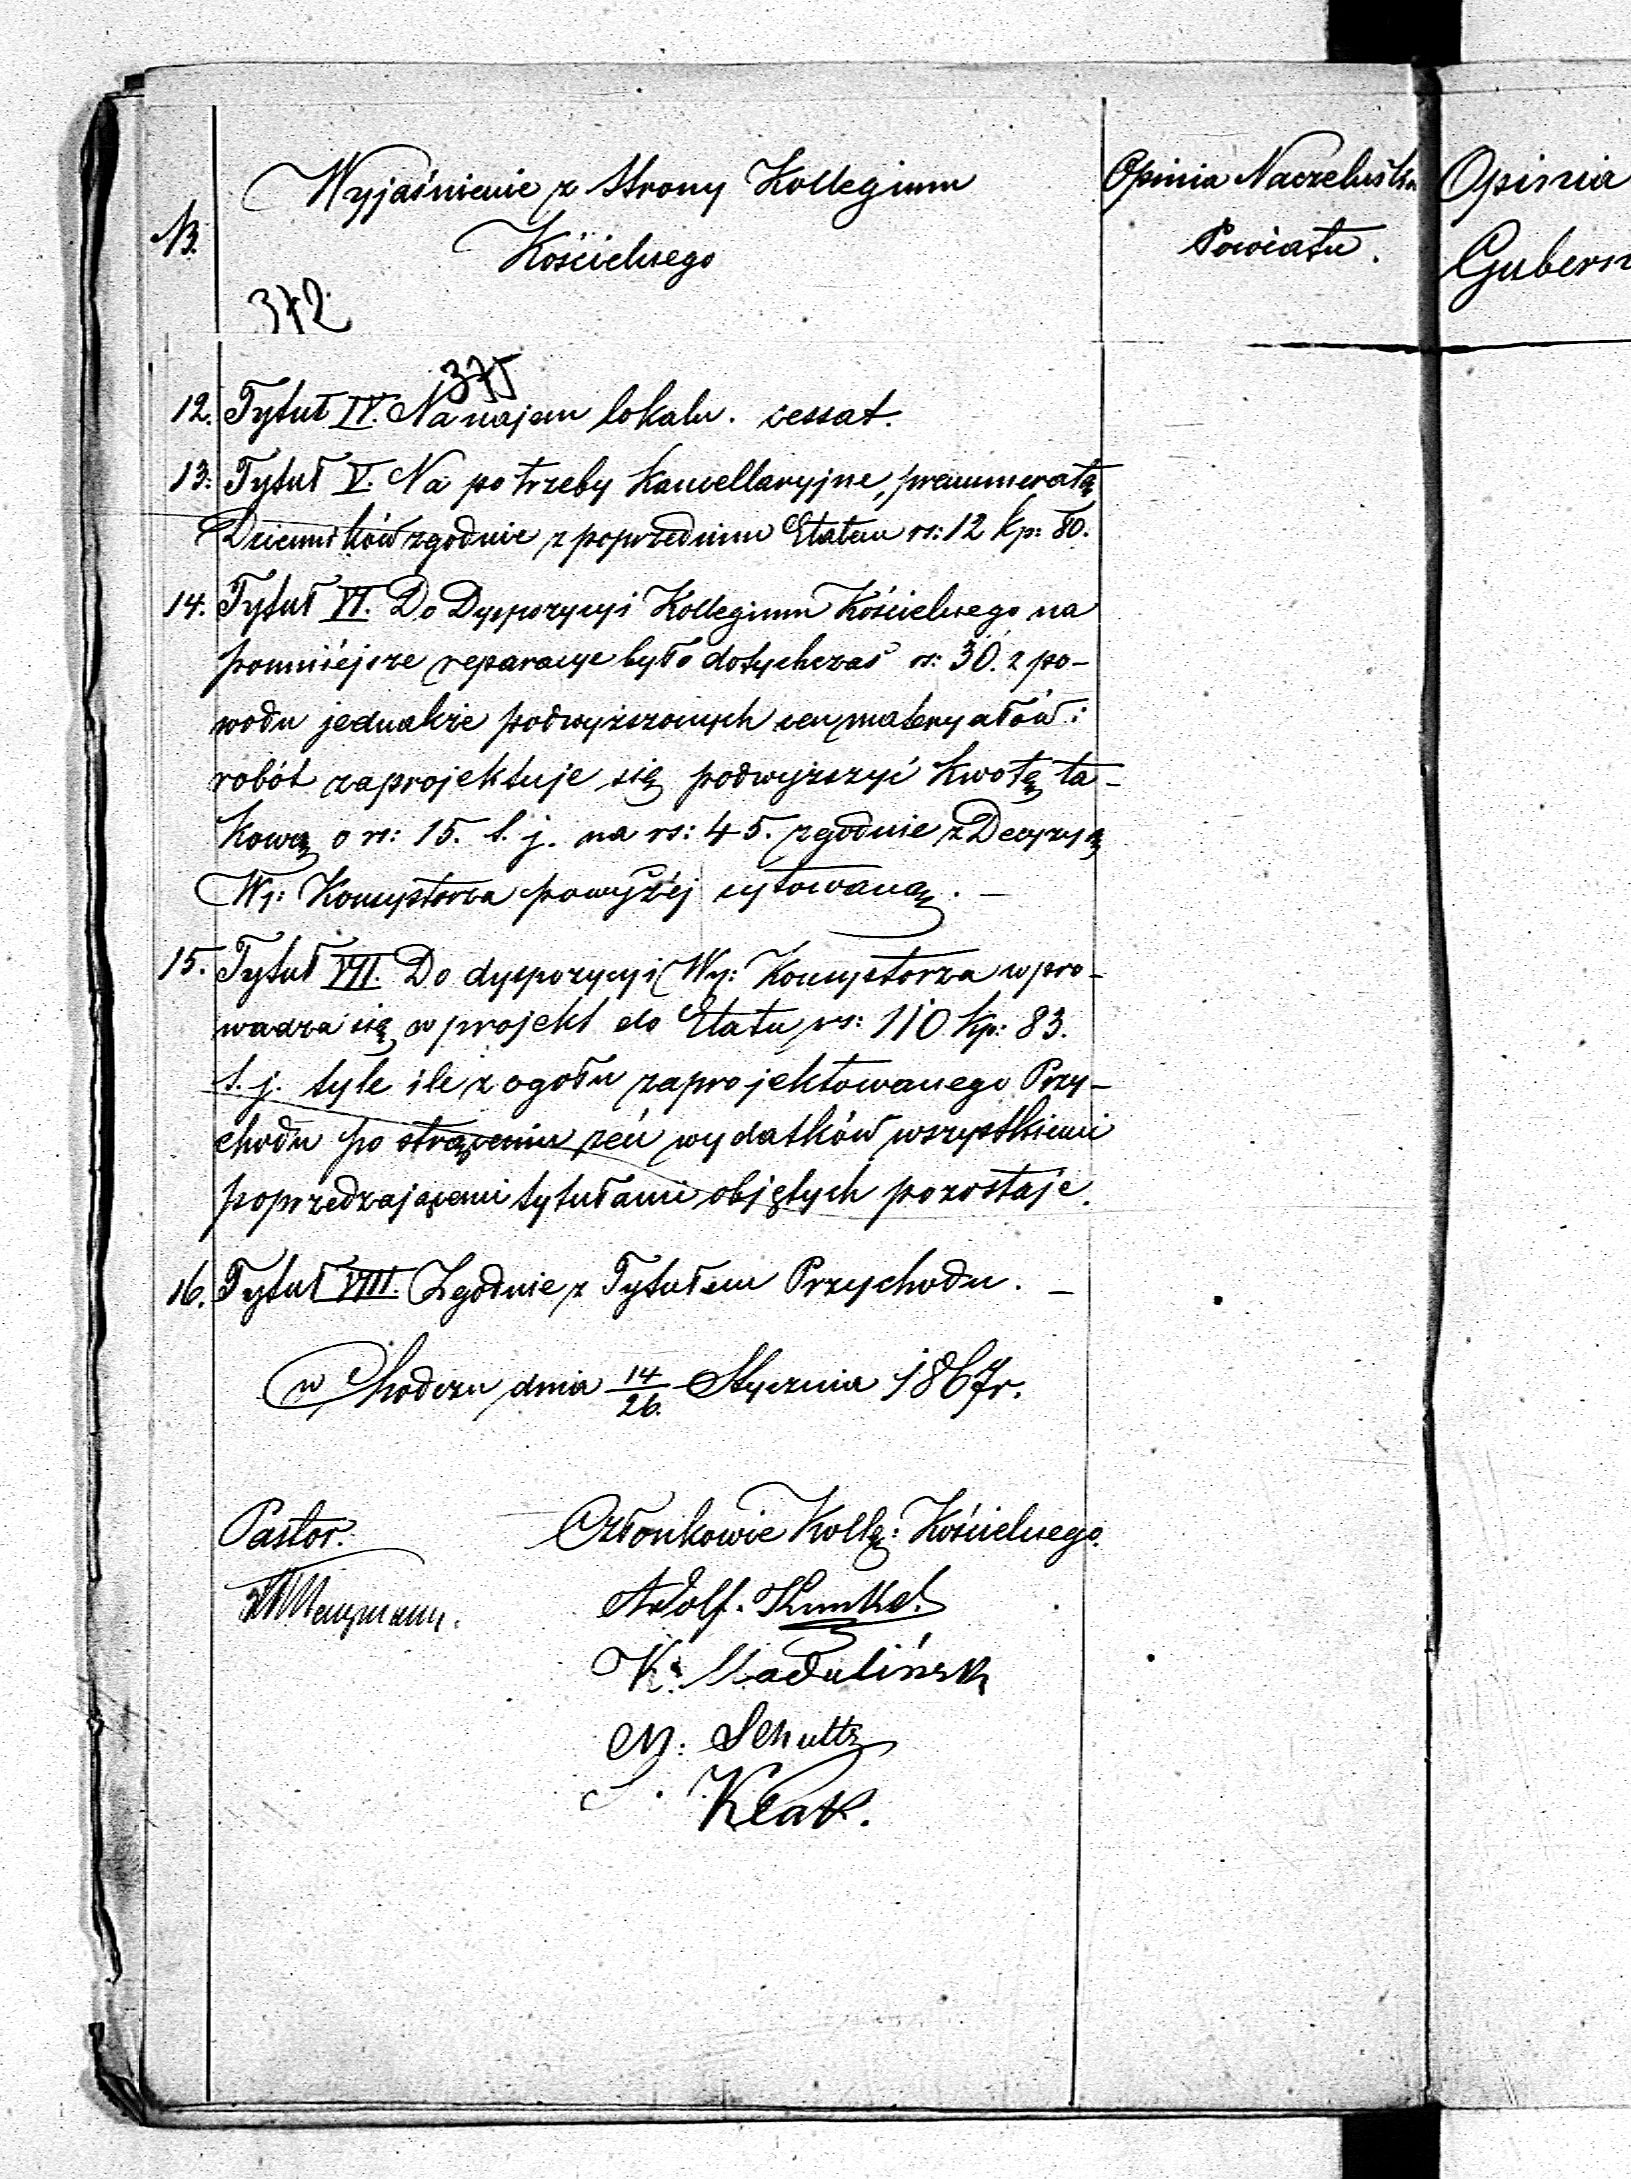 Wyjaśnienie z strony Kollegium
Opinia Naczelnika
Opinia
N.
Kościelnego
Powiatu.
Gubern
372
375
12. Tytuł IV. Na najem lokalu. cessat.
13. Tytuł V. Na potrzeby kancellaryjne, prenumeratę
Dzienników zgodnie z poprzednim Etatem rs: 12 kp: 80.
14. Tytuł VI. Do Dyspozycyi Kollegium Kościelnego na
pomniejsze reparacye było dotychczas rs: 30. z po-
wodu jednakże podwyższonych cen materyałów i
robót zaprojektuje się podwyższyć kwotę ta-
kową o rs: 15. t. j. na rs: 45. zgodnie z Decyzyą
Wy: Konsystorza powyżej cytowaną. –
15. Tytuł VII. Do dyspozycyi Wy: Konsystorza wpro-
wadza się w projekt do Etatu rs: 110 kp: 83.
t. j. tyle ile z ogółu zaprojektowanego Przy-
chodu po strąceniu zeń wydatków wszystkiemi
poprzedzającemi tytułami objętych pozostaje.
16. Tytuł VIII. Zgodnie z Tytułem Przychodu. –
w Chodczu dnia 14/26. Stycznia 1867 r.
Pastor.
Członkowie Kolleg: Kościelnego.
Adolf. Kunkel
K. Madulińsk
M. Schultz
Klatt.